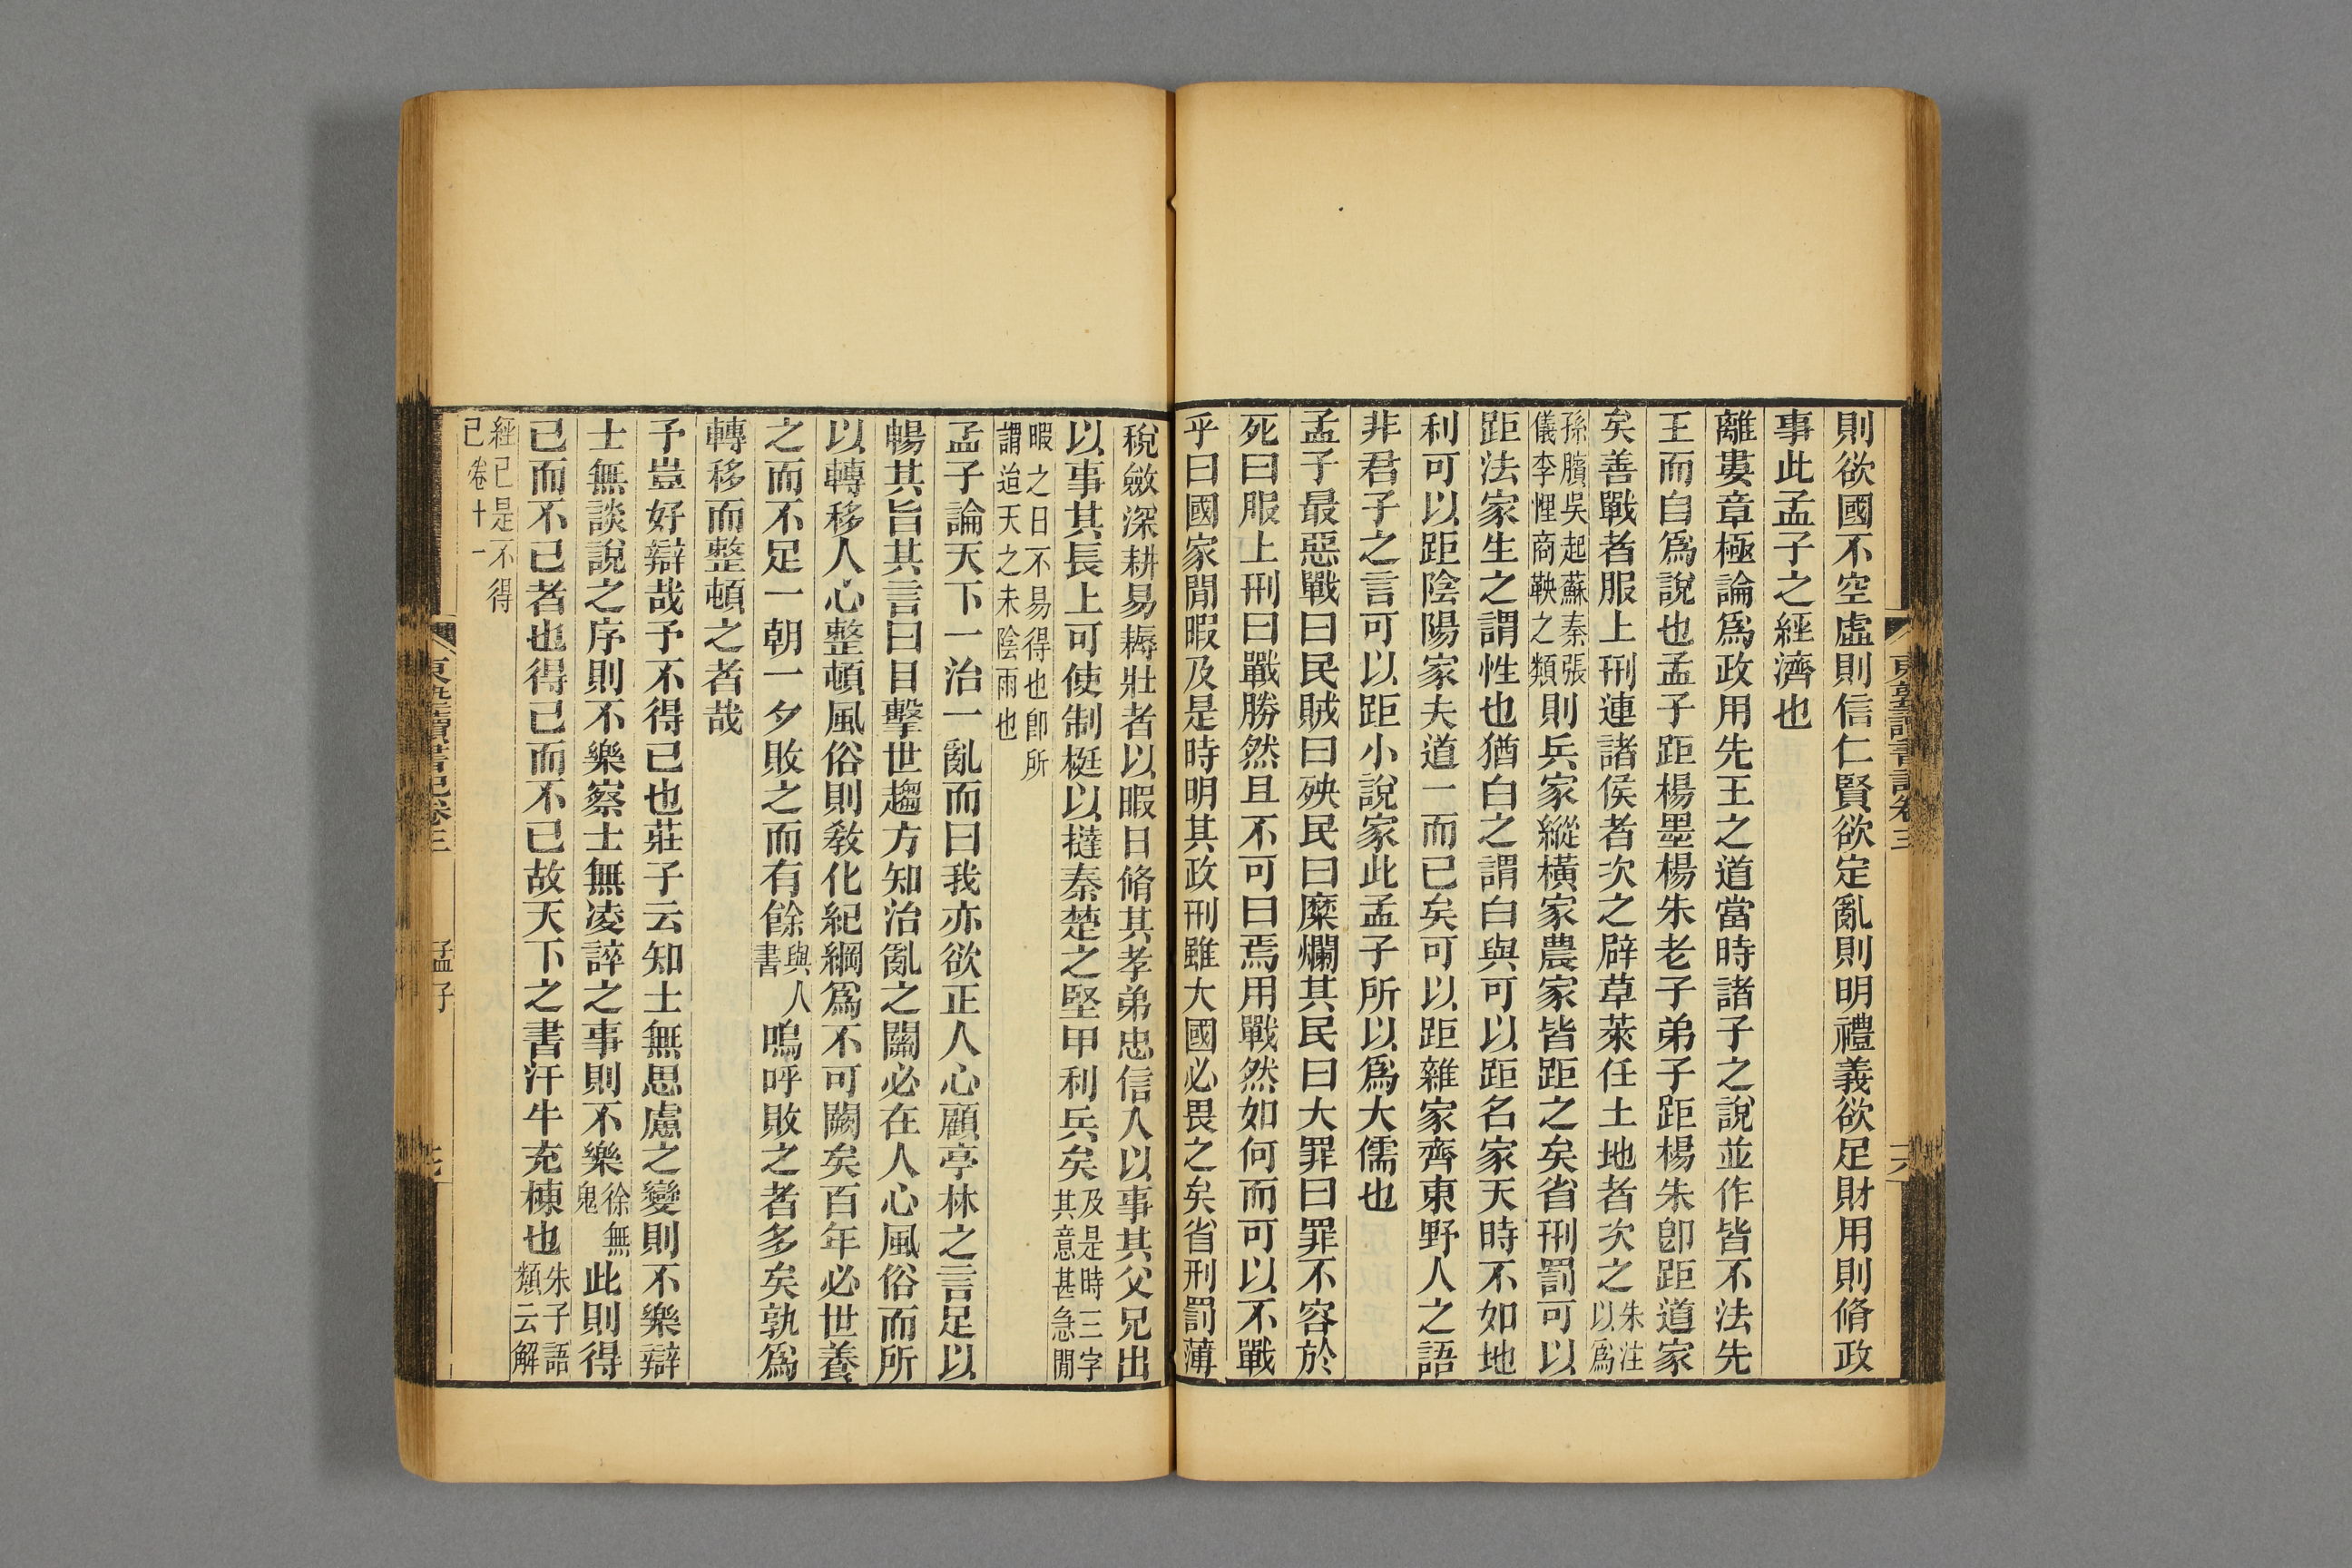 則欲國不空虛則信仁賢欲定亂則明禮義欲足財用則脩政
事此孟子之經濟也
離婁章極論爲政用先王之道當時諸子之說並作皆不法先
王而自爲說也孟子距楊墨楊朱老子弟子距楊朱卽距道家
矣善戰者服上刑連諸侯者次之辟草萊任土地者次之朱注以爲
孫臏吳起蘇秦張儀李悝商鞅之類則兵家縱橫家農家皆距之矣省刑罰可以
距法家生之謂性也猶白之謂白與可以距名家天時不如地
利可以距陰陽家夫道一而已矣可以距雜家齊東野人之語
非君子之言可以距小說家此孟子所以爲大儒也
孟子最惡戰曰民賊曰殃民曰糜爛其民曰大罪曰罪不容於
死曰服上刑曰戰勝然且不可曰焉用戰然如何而可以不戰
乎曰國家閒暇及是時明其政刑雖大國必畏之矣省刑罰薄
稅斂深耕易耨壯者以暇日脩其孝弟忠信入以事其父兄出
以事其長上可使制梃以撻秦楚之堅甲利兵矣及是時三字其意甚急閒
暇之日不易得也卽所謂迨天之未陰雨也
孟子論天下一治一亂而曰我亦欲正人心顧亭林之言足以
暢其旨其言曰目擊世趨方知治亂之關必在人心風俗而所
以轉移人心整頓風俗則敎化紀綱爲不可闕矣百年必世養
之而不足一朝一夕敗之而有餘與人書嗚呼敗之者多矣孰爲
轉移而整頓之者哉
予豈好辯哉予不得已也莊子云知士無思慮之變則不樂辯
士無談說之序則不樂察士無凌誶之事則不樂徐無鬼此則得
已而不已者也得已而不已故天下之書汗牛充棟也朱子語類云解
經已是不得已卷十一
東塾讀書記卷三
孟子